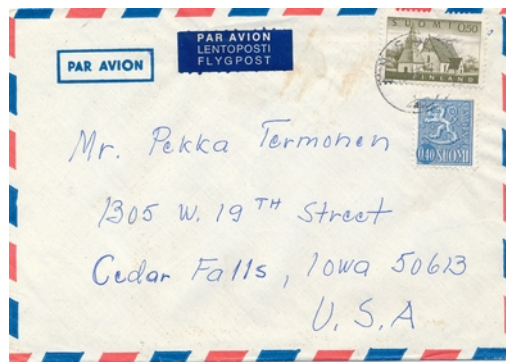 PAR AVION
LENTOPOSTI
FLYGPOST
PAR AVION
SUOMI 0,50
FINLAND
0,40 SUOMI
Mr. Pekka Termonen
1305 W. 19TH Street
Cedar Falls, Iowa 50613
U.S.A